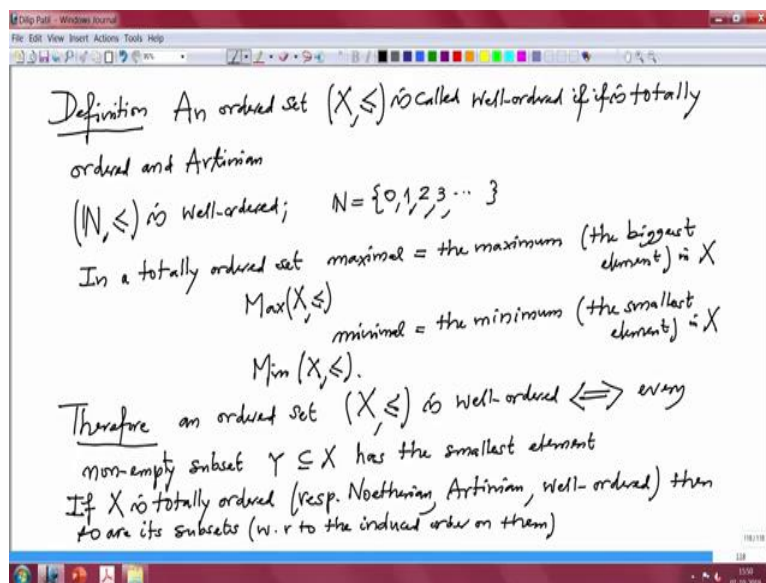 Dilip Patil - Windows Journal
File Edit View Insert Actions Tools Help
Definition An ordered set (X, ≤) is called Well-ordered if if is totally
ordered and Artinian
(ℕ, ≤) is well-ordered; ℕ = {0, 1, 2, 3, ... }
In a totally ordered set maximal = the maximum (the biggest
element) in X
Max(X, ≤)
minimal = the minimum (the smallest
element) in X
Min (X, ≤).
Therefore an ordered set (X, ≤) is well-ordered ⟺ every
non-empty subset Y ⊆ X has the smallest element
If X is totally ordered (resp. Noetherian, Artinian, well-ordered) then
so are its subsets (w.r to the induced order on them)
118/118
118
15:50